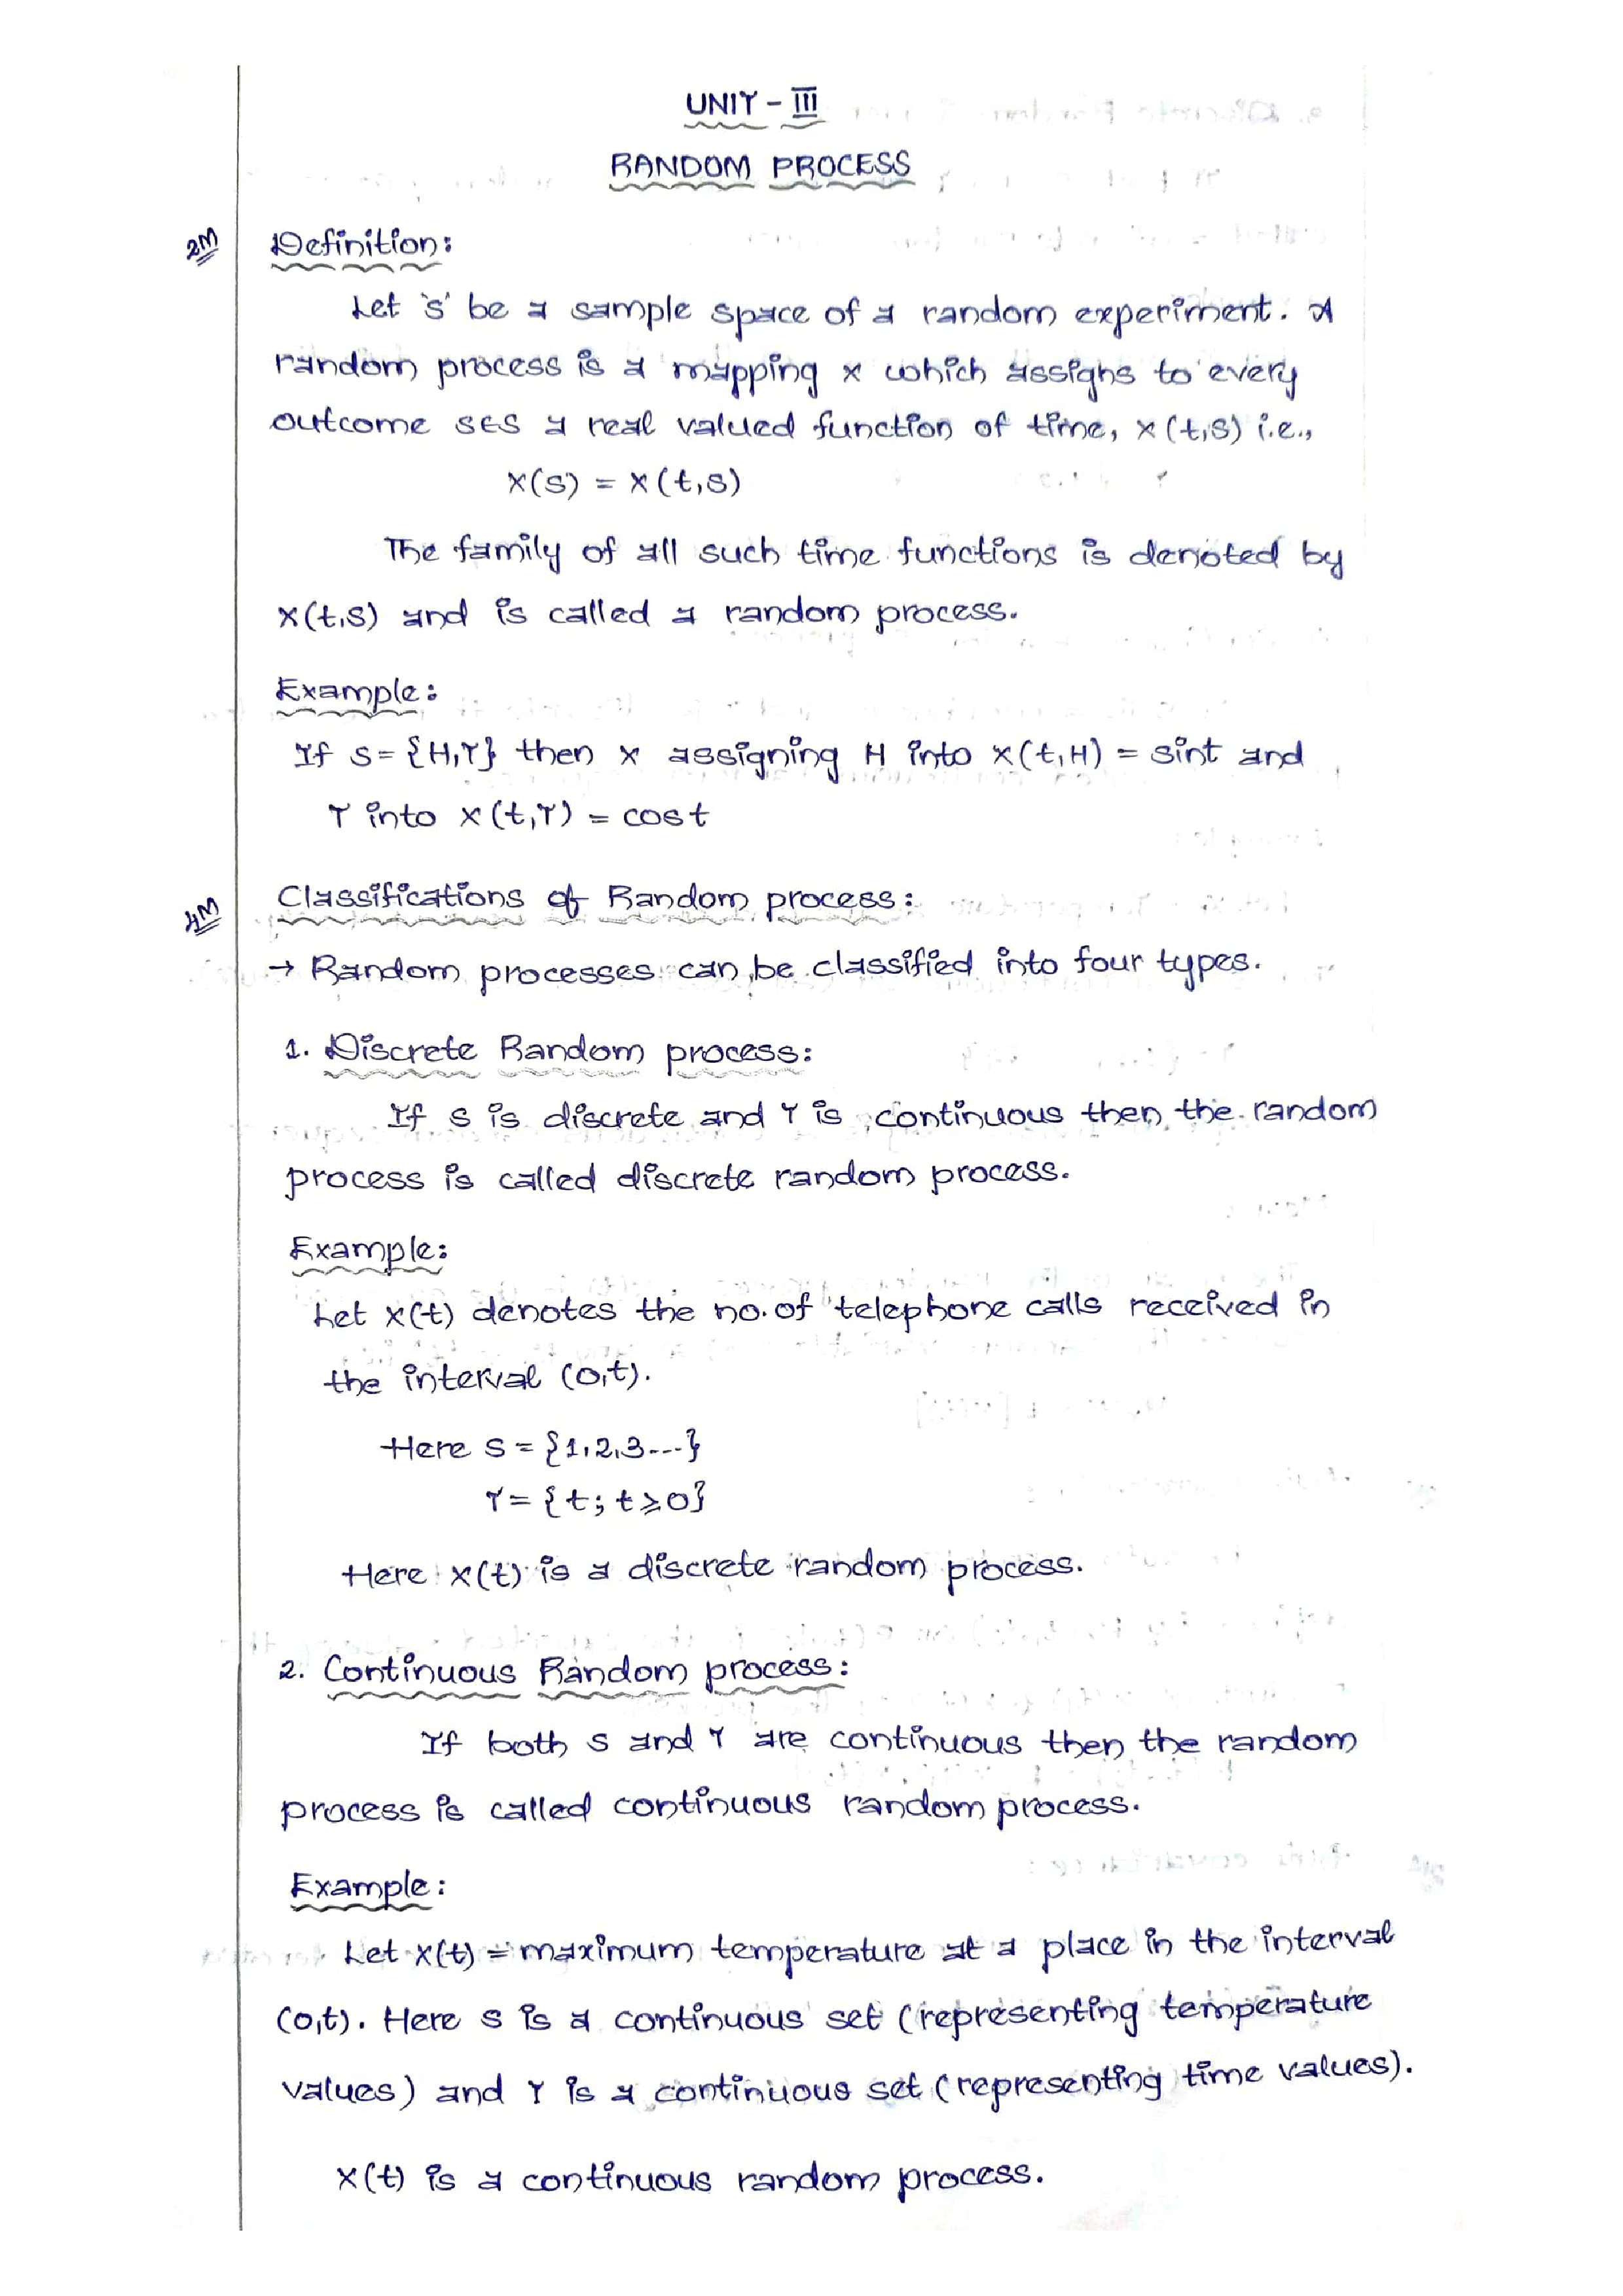 UNIT - III
RANDOM PROCESS
2M
Definition:
Let 's' be a sample space of a random experiment. A
random process is a mapping x which assigns to every
outcome s∈s a real valued function of time, x(t,s) i.e.,
x(s) = x(t,s)
The family of all such time functions is denoted by
x(t,s) and is called a random process.
Example:
If s = {H,T} then x assigning H into x(t,H) = sint and
T into x(t,T) = cost
4M
Classifications of Random process:
→ Random processes can be classified into four types.
1. Discrete Random process:
If s is discrete and T is continuous then the random
process is called discrete random process.
Example:
Let x(t) denotes the no. of telephone calls received in
the interval (0,t).
Here s = {1,2,3---}
T = {t; t≥0}
Here x(t) is a discrete random process.
2. Continuous Random process:
If both s and T are continuous then the random
process is called continuous random process.
Example:
Let x(t) = maximum temperature at a place in the interval
(0,t). Here s is a continuous set (representing temperature
values) and T is a continuous set (representing time values).
x(t) is a continuous random process.